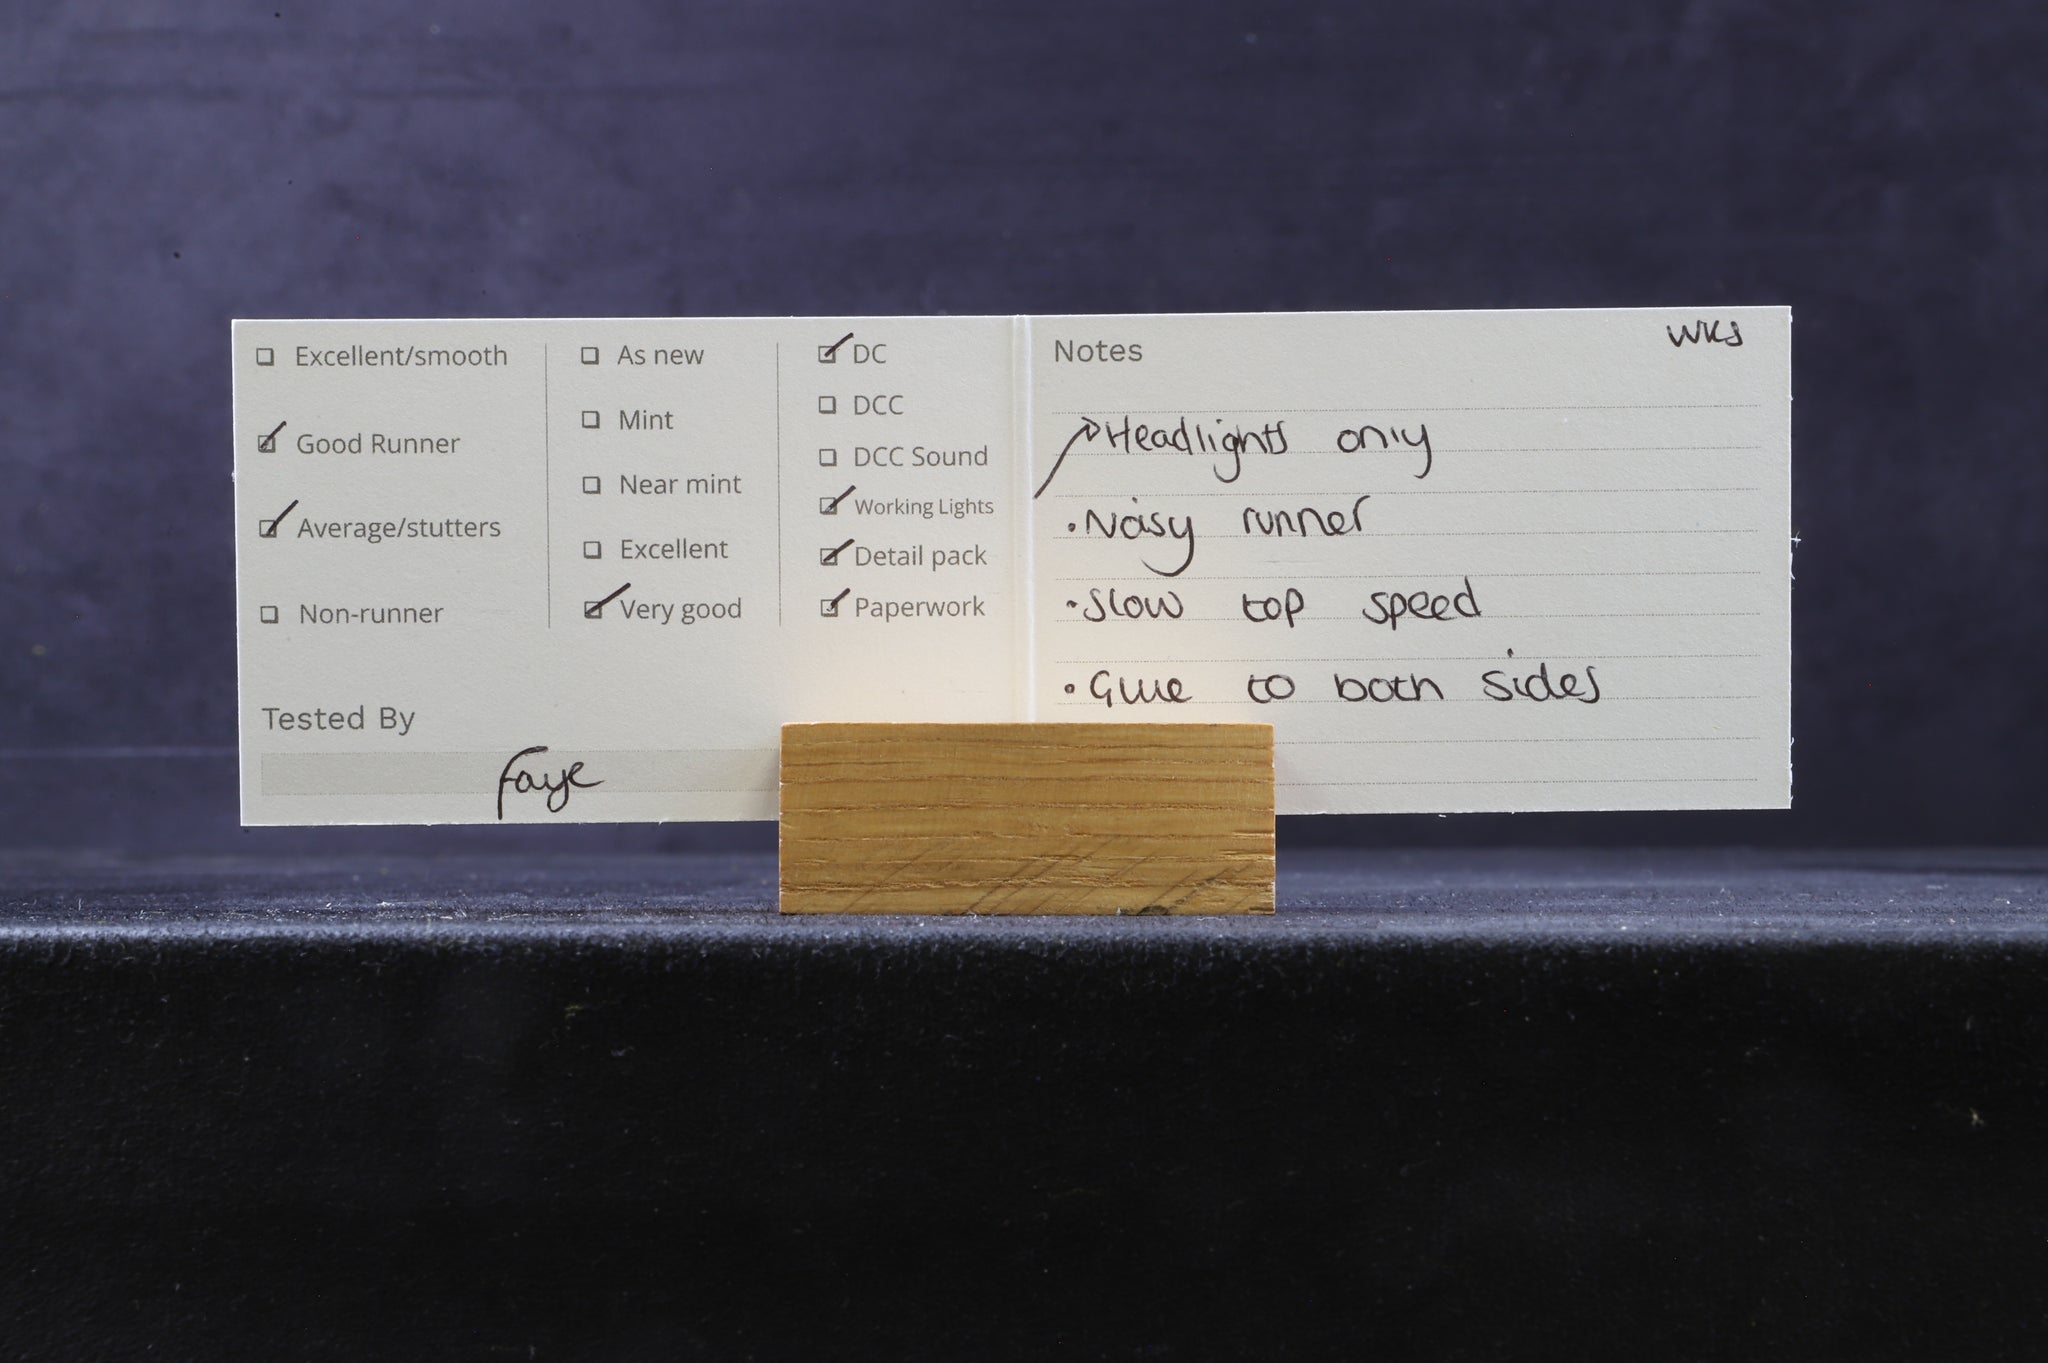 Excellent/smooth
Good Runner
Average/stutters
Non-runner
As new
Mint
Near mint
Excellent
Very good
DC
DCC
DCC Sound
Working Lights
Detail pack
Paperwork
Tested By
Faye
Notes
WKS
Headlights only
• Noisy runner
• Slow top speed
• Glue to both sides